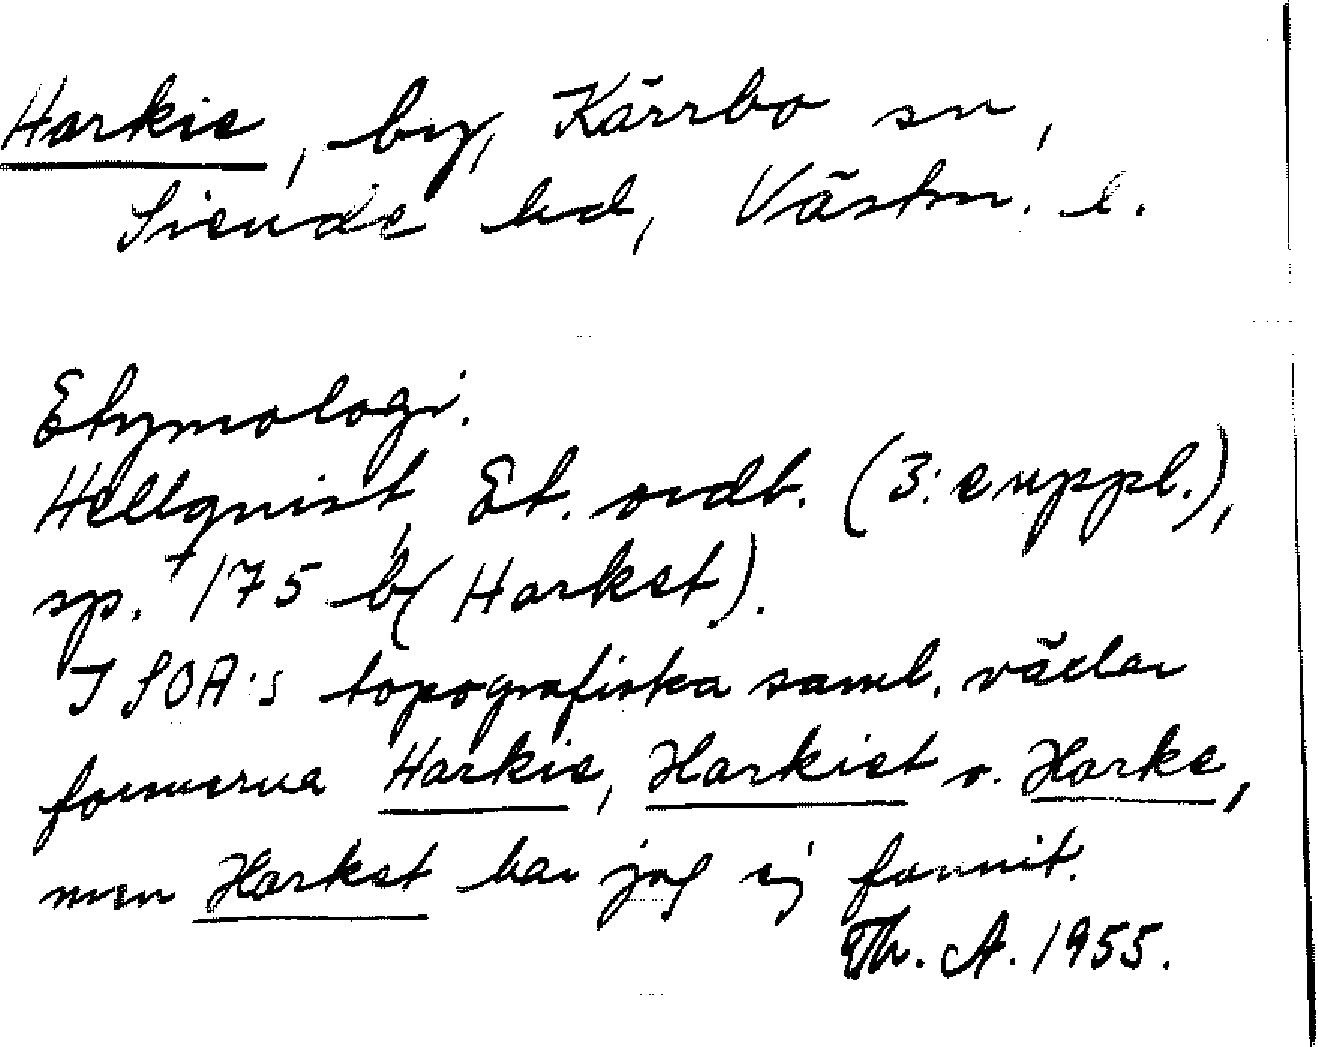 Harkie, by, Kärrbo sn,
Siende hd, Västm. l.
Etymologi.
Hellquist, Et. ordb. (3:e uppl.),
sp. 175 b (Harket).
I SOA:s topografiska saml. växlar
formerna Harkie, Harkiet o. Harke,
men Harket har jag ej funnit.
Th. A. 1955.